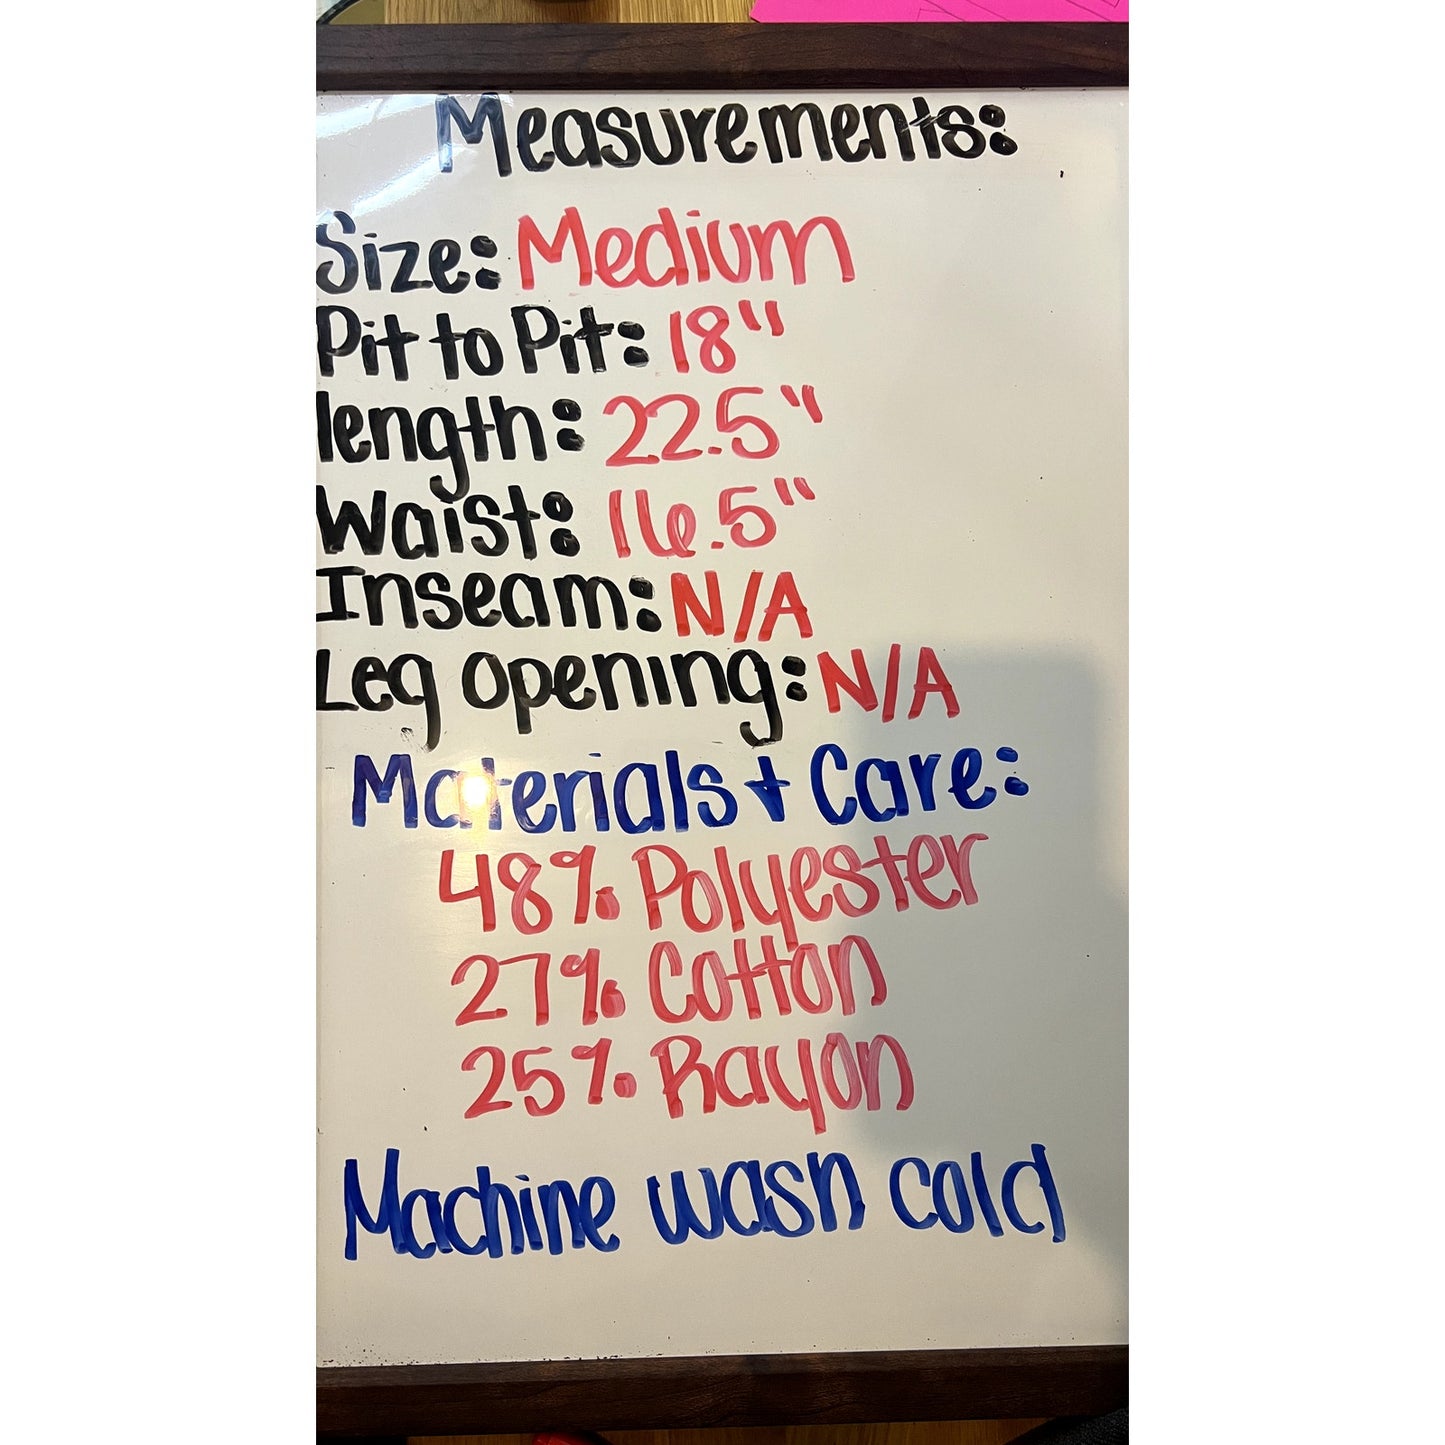 Measurements:
Size: Medium
Pit to Pit: 18"
length: 22.5"
Waist: 16.5"
Inseam: N/A
Leg opening: N/A
Materials + Care:
48% Polyester
27% Cotton
25% Rayon
Machine wash cold